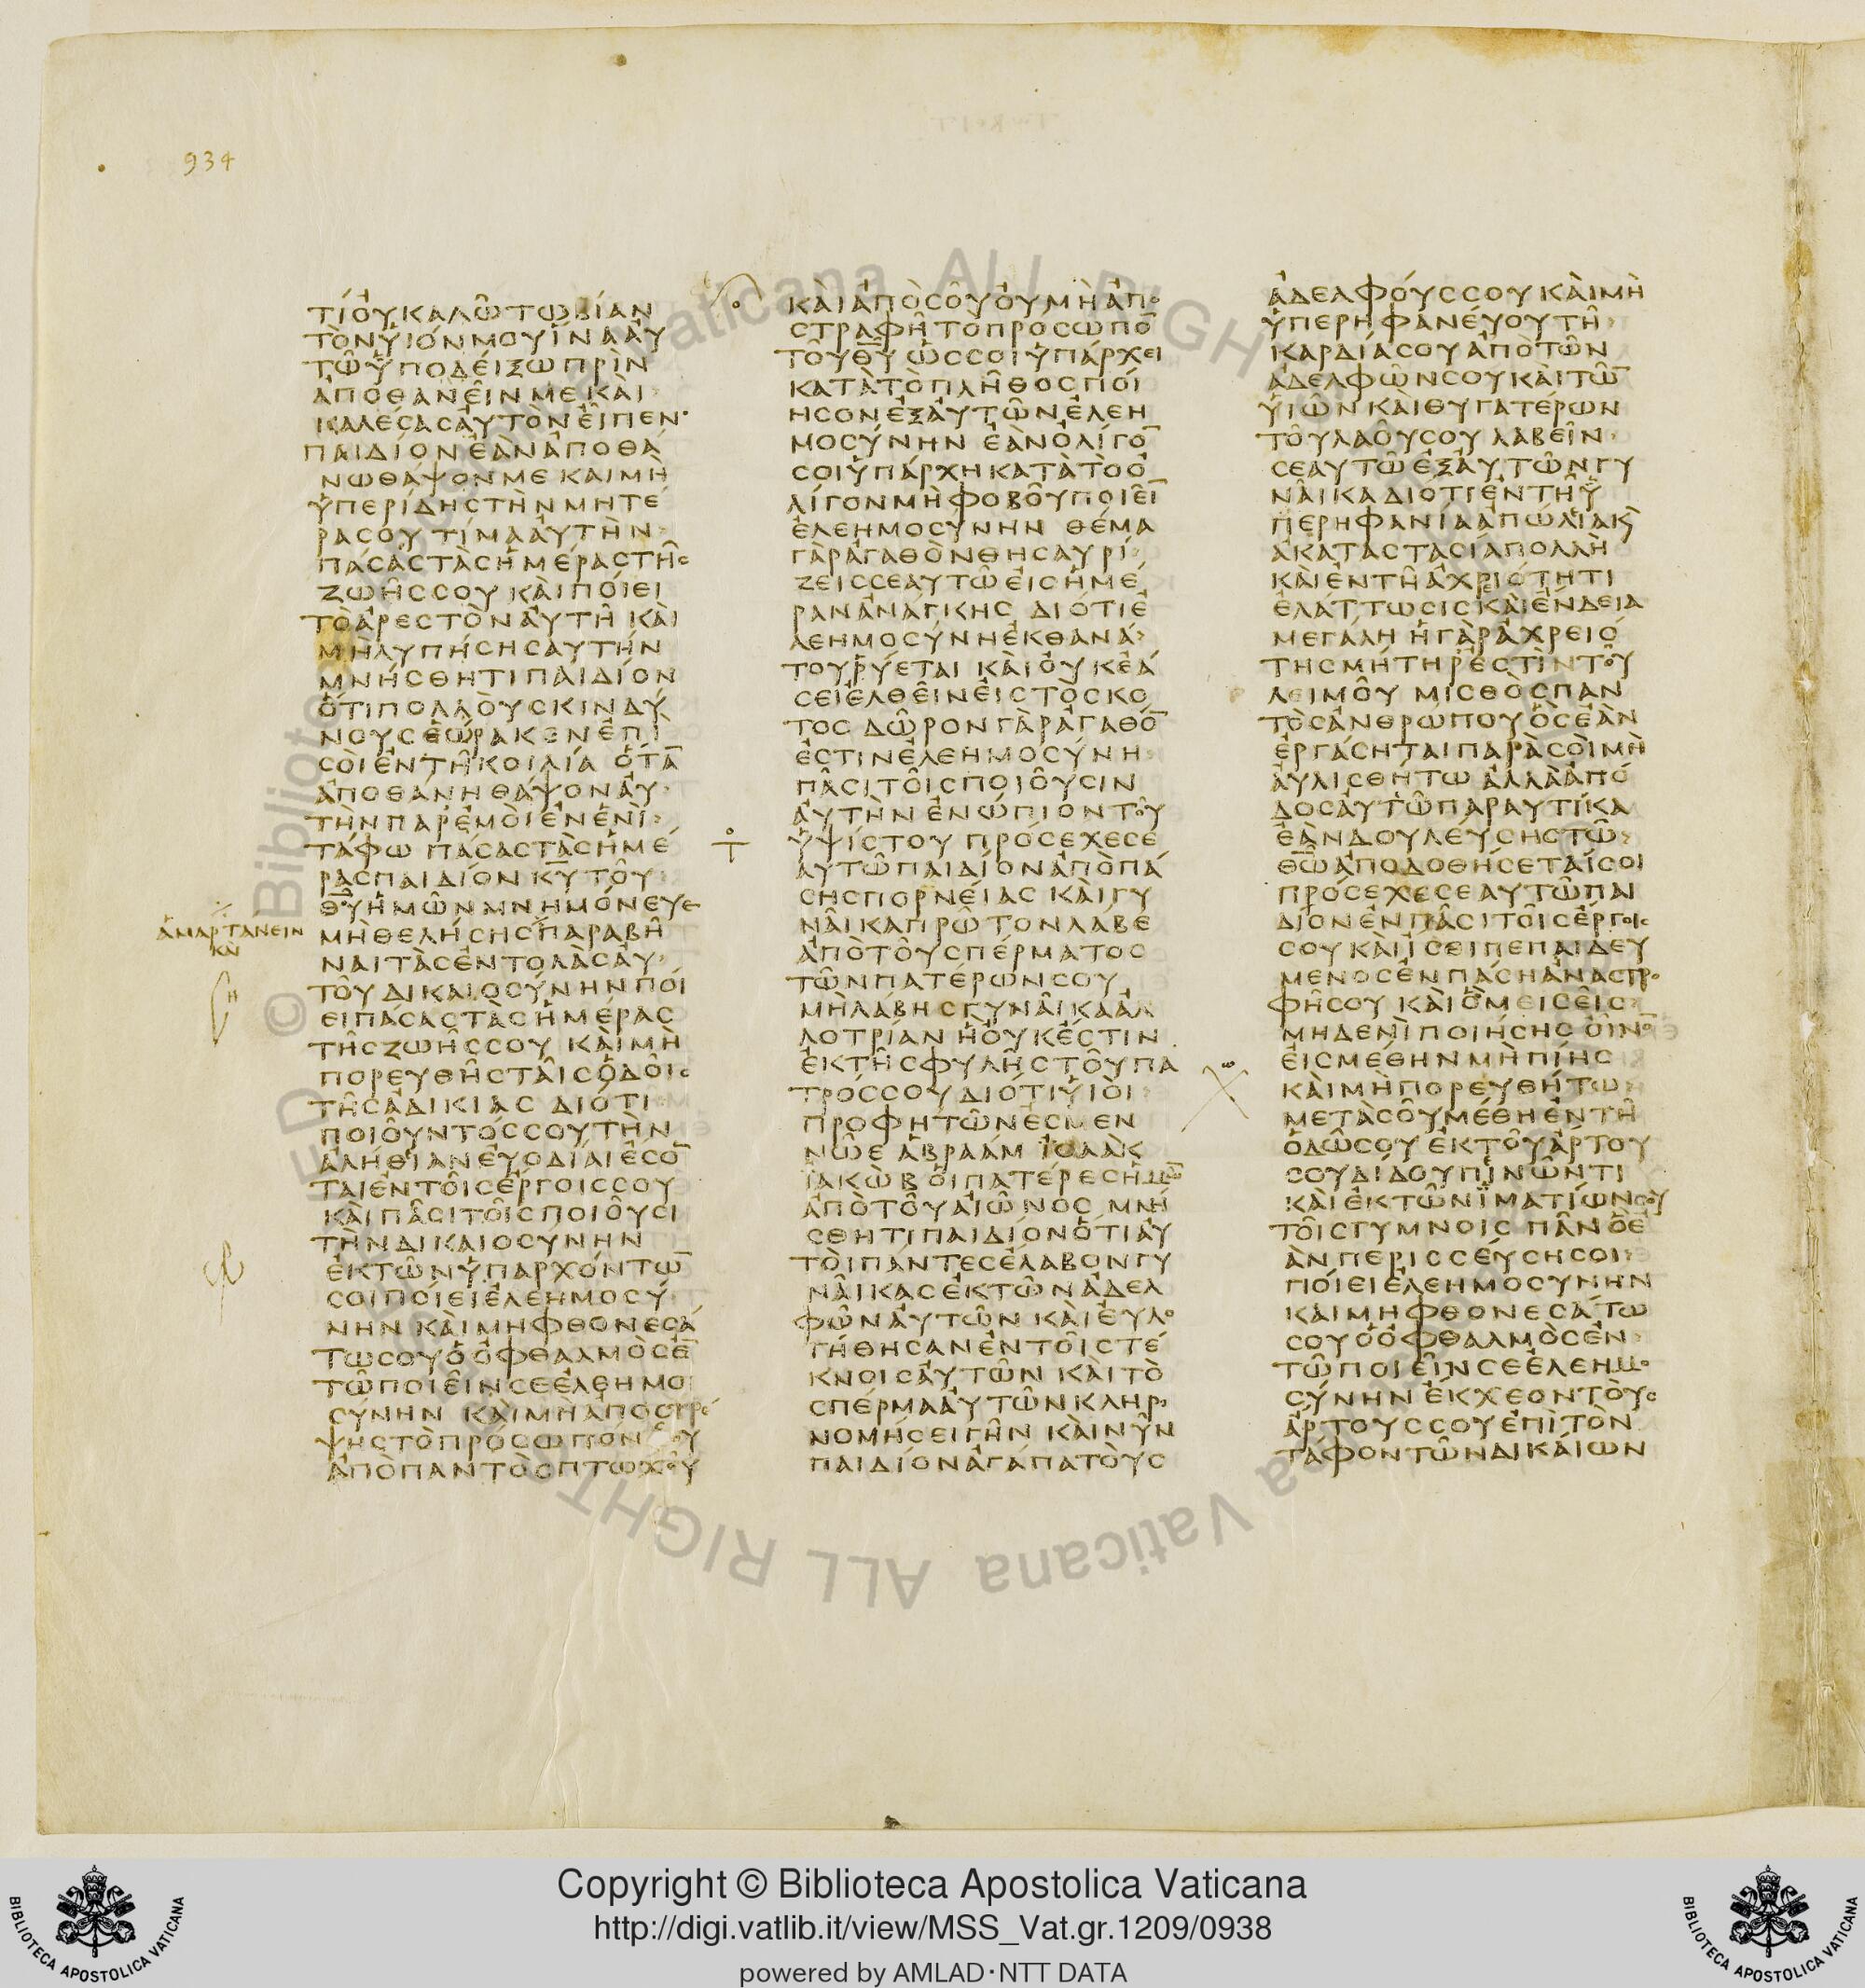 934
ΤΙΟΥΚΑΛΩΤΩΒΙΑΝ
ΤΟΝΥΙΟΝΜΟΥΙΝΑΑΥ
ΤΩΥΠΟΔΕΙΞΩΠΡΙΝ
ΑΠΟΘΑΝΕΙΝΜΕΚΑΙ
ΚΑΛΕCΑCΑΥΤΟΝΕΙΠΕΝ
ΠΑΙΔΙΟΝΕΑΝΑΠΟΘΑ
ΝΩΘΑΨΟΝΜΕ ΚΑΙΜΗ
ΥΠΕΡΙΔΗCΤΗΝΜΗΤΕ
ΡΑCΟΥ ΤΙΜΑΑΥΤΗΝ
ΠΑCΑCΤΑCΗΜΕΡΑCΤΗC
ΖΩΗCCΟΥ ΚΑΙΠΟΙΕΙ
ΤΟΑΡΕCΤΟΝΑΥΤΗ ΚΑΙ
ΜΗΛΥΠΗCΗCΑΥΤΗΝ
ΜΝΗCΘΗΤΙΠΑΙΔΙΟΝ
ΟΤΙΠΟΛΛΟΥCΚΙΝΔΥ
ΝΟΥCΕΩΡΑΚΕΝΕΠΙ
CΟΙΕΝΤΗΚΟΙΛΙΑ ΟΤΑ̅
ΑΠΟΘΑΝΗΘΑΨΟΝΑΥ
ΤΗΝΠΑΡΕΜΟΙΕΝΕΝΙ
ΤΑΦΩ ΠΑCΑCΤΑCΗΜΕ
ΡΑCΠΑΙΔΙΟΝ Κ̅Υ̅ ΤΟΥ
Θ̅Υ̅ΗΜΩΝΜΝΗΜΟΝΕΥΕ
ΑΜΑΡΤΑΝΕΙΝ
ΚΑΙ
ΜΗΘΕΛΗCΗCΠΑΡΑΒΗ
ΝΑΙΤΑCΕΝΤΟΛΑCΑΥ
ΤΟΥ ΔΙΚΑΙΟCΥΝΗΝΠΟΙ
ΕΙΠΑCΑCΤΑCΗΜΕΡΑC
ΤΗCΖΩΗCCΟΥ ΚΑΙΜΗ
ΠΟΡΕΥΘΗCΤΑΙCΟΔΟΙC
ΤΗCΑΔΙΚΙΑC ΔΙΟΤΙ
ΠΟΙΟΥΝΤΟCCΟΥΤΗΝ
ΑΛΗΘΙΑΝΕΥΟΔΙΑΙΕCΟ̅
ΤΑΙΕΝΤΟΙCΕΡΓΟΙCCΟΥ
ΚΑΙΠΑCΙΤΟΙCΠΟΙΟΥCΙ
ΤΗΝΔΙΚΑΙΟCΥΝΗΝ
ΕΚΤΩΝΥΠΑΡΧΟΝΤΩ̅
CΟΙΠΟΙΕΙΕΛΕΗΜΟCΥ
ΝΗΝ ΚΑΙΜΗΦΘΟΝΕCΑ
ΤΩCΟΥΟΟΦΘΑΛΜΟCΕ̅
ΤΩΠΟΙΕΙΝCΕΕΛΕΗΜΟ
CΥΝΗΝ ΚΑΙΜΗΑΠΟCΤΡΕ
ΨΗCΤΟΠΡΟCΩΠΟΝCΟΥ
ΑΠΟΠΑΝΤΟCΠΤΩΧΟΥ
ΚΑΙΑΠΟCΟΥΟΥΜΗΑΠΟ
CΤΡΑΦΗΤΟΠΡΟCΩΠΟ̅
ΤΟΥΘ̅Υ̅ ΩCCΟΙΥΠΑΡΧΕΙ
ΚΑΤΑΤΟΠΛΗΘΟCΠΟΙ
ΗCΟΝΕΞΑΥΤΩΝΕΛΕΗ
ΜΟCΥΝΗΝ ΕΑΝΟΛΙΓΟ̅
CΟΙΥΠΑΡΧΗΚΑΤΑΤΟΟ
ΛΙΓΟΝΜΗΦΟΒΟΥΠΟΙΕΙ̅
ΕΛΕΗΜΟCΥΝΗΝ ΘΕΜΑ
ΓΑΡΑΓΑΘΟΝΘΗCΑΥΡΙ
ΖΕΙCCΕΑΥΤΩΕΙCΗΜΕ
ΡΑΝΑΝΑΓΚΗC ΔΙΟΤΙΕ
ΛΕΗΜΟCΥΝΗΕΚΘΑΝΑ
ΤΟΥΡΥΕΤΑΙ ΚΑΙΟΥΚΕΑ
CΕΙΕΛΘΕΙΝΕΙCΤΟCΚΟ
ΤΟC ΔΩΡΟΝΓΑΡΑΓΑΘΟ̅
ΕCΤΙΝΕΛΕΗΜΟCΥΝΗ
ΠΑCΙΤΟΙCΠΟΙΟΥCΙΝ
ΑΥΤΗΝΕΝΩΠΙΟΝΤΟΥ
ΥΨΙCΤΟΥ ΠΡΟCΕΧΕCΕ
ΑΥΤΩΠΑΙΔΙΟΝΑΠΟΠΑ
CΗCΠΟΡΝΕΙΑC ΚΑΙΓΥ
ΝΑΙΚΑΠΡΩΤΟΝΛΑΒΕ
ΑΠΟΤΟΥCΠΕΡΜΑΤΟC
ΤΩΝΠΑΤΕΡΩΝCΟΥ
ΜΗΛΑΒΗCΓΥΝΑΙΚΑΑΛ
ΛΟΤΡΙΑΝ ΗΟΥΚΕCΤΙΝ
ΕΚΤΗCΦΥΛΗCΤΟΥΠΑ
ΤΡΟCCΟΥ ΔΙΟΤΙΥΙΟΙ
ΠΡΟΦΗΤΩΝΕCΜΕΝ
ΝΩΕ ΑΒΡΑΑΜ ΙCΑΑΚ
ΙΑΚΩΒ ΟΙΠΑΤΕΡΕCΗΜΩ̅
ΑΠΟΤΟΥΑΙΩΝΟC ΜΝΗ
CΘΗΤΙΠΑΙΔΙΟΝΟΤΙΑΥ
ΤΟΙΠΑΝΤΕCΕΛΑΒΟΝΓΥ
ΝΑΙΚΑCΕΚΤΩΝΑΔΕΛ
ΦΩΝΑΥΤΩΝ ΚΑΙΕΥΛΟ
ΓΗΘΗCΑΝΕΝΤΟΙCΤΕ
ΚΝΟΙCΑΥΤΩΝ ΚΑΙΤΟ
CΠΕΡΜΑΑΥΤΩΝΚΛΗΡΟ
ΝΟΜΗCΕΙΓΗΝ ΚΑΙΝΥΝ
ΠΑΙΔΙΟΝΑΓΑΠΑΤΟΥC
ΑΔΕΛΦΟΥCCΟΥ ΚΑΙΜΗ
ΥΠΕΡΗΦΑΝΕΥΟΥΤΗ
ΚΑΡΔΙΑCΟΥΑΠΟΤΩΝ
ΑΔΕΛΦΩΝCΟΥΚΑΙΤΩ̅
ΥΙΩΝΚΑΙΘΥΓΑΤΕΡΩΝ
ΤΟΥΛΑΟΥCΟΥ ΛΑΒΕΙΝ
CΕΑΥΤΩΕΞΑΥΤΩΝΓΥ
ΝΑΙΚΑΔΙΟΤΙΕΝΤΗΥ
ΠΕΡΗΦΑΝΙΑΑΠΩΛΙΑΚ
ΑΚΑΤΑCΤΑCΙΑΠΟΛΛΗ
ΚΑΙΕΝΤΗΑΧΡΙΟΤΗΤΙ
ΕΛΑΤΤΩCΙCΚΑΙΕΝΔΕΙΑ
ΜΕΓΑΛΗ ΗΓΑΡΑΧΡΕΙΟ
ΤΗCΜΗΤΗΡΕCΤΙΝΤΟΥ
ΛΕΙΜΟΥ ΜΙCΘΟCΠΑΝ
ΤΟCΑΝΘΡΩΠΟΥΟCΕΑΝ
ΕΡΓΑCΗΤΑΙΠΑΡΑCΟΙΜΗ
ΑΥΛΙCΘΗΤΩ ΑΛΛΑΑΠΟ
ΔΟCΑΥΤΩΠΑΡΑΥΤΙΚΑ
ΕΑΝΔΟΥΛΕΥCΗCΤΩ
Θ̅Ω̅ΑΠΟΔΟΘΗCΕΤΑΙCΟΙ
ΠΡΟCΕΧΕCΕΑΥΤΩΠΑΙ
ΔΙΟΝΕΝΠΑCΙΤΟΙCΕΡΓΟΙC
CΟΥ ΚΑΙΙCΘΙΠΕΠΑΙΔΕΥ
ΜΕΝΟCΕΝΠΑCΗΑΝΑCΤΡΟ
ΦΗCΟΥ ΚΑΙΟΜΕΙCΕΙC
ΜΗΔΕΝΙΠΟΙΗCΗC ΟΙΝΟ̅
ΕΙCΜΕΘΗΝΜΗΠΙΗC
ΚΑΙΜΗΠΟΡΕΥΘΗΤΩ
ΜΕΤΑCΟΥΜΕΘΗΕΝΤΗ
ΟΔΩCΟΥ ΕΚΤΟΥΑΡΤΟΥ
CΟΥΔΙΔΟΥΠΙΝΩΝΤΙ
ΚΑΙΕΚΤΩΝΙΜΑΤΙΩΝCΟΥ
ΤΟΙCΓΥΜΝΟΙC ΠΑΝΟΕ
ΑΝΠΕΡΙCCΕΥCΗCΟΙ
ΠΟΙΕΙΕΛΕΗΜΟCΥΝΗΝ
ΚΑΙΜΗΦΘΟΝΕCΑΤΩ
CΟΥΟΟΦΘΑΛΜΟCΕΝ
ΤΩΠΟΙΕΙΝCΕΕΛΕΗΜΟ
CΥΝΗΝ ΕΚΧΕΟΝΤΟΥC
ΑΡΤΟΥCCΟΥΕΠΙΤΟΝ
ΤΑΦΟΝΤΩΝΔΙΚΑΙΩΝ
Copyright © Biblioteca Apostolica Vaticana
http://digi.vatlib.it/view/MSS_Vat.gr.1209/0938
powered by AMLAD·NTT DATA
BIBLIOTECA APOSTOLICA VATICANA
BIBLIOTECA APOSTOLICA VATICANA